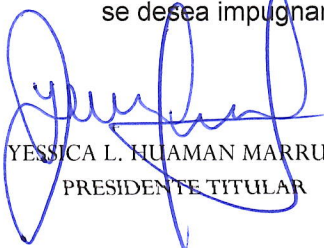 se desea impugnar
YESSICA L. HUAMAN MARRU
PRESIDENTE TITULAR